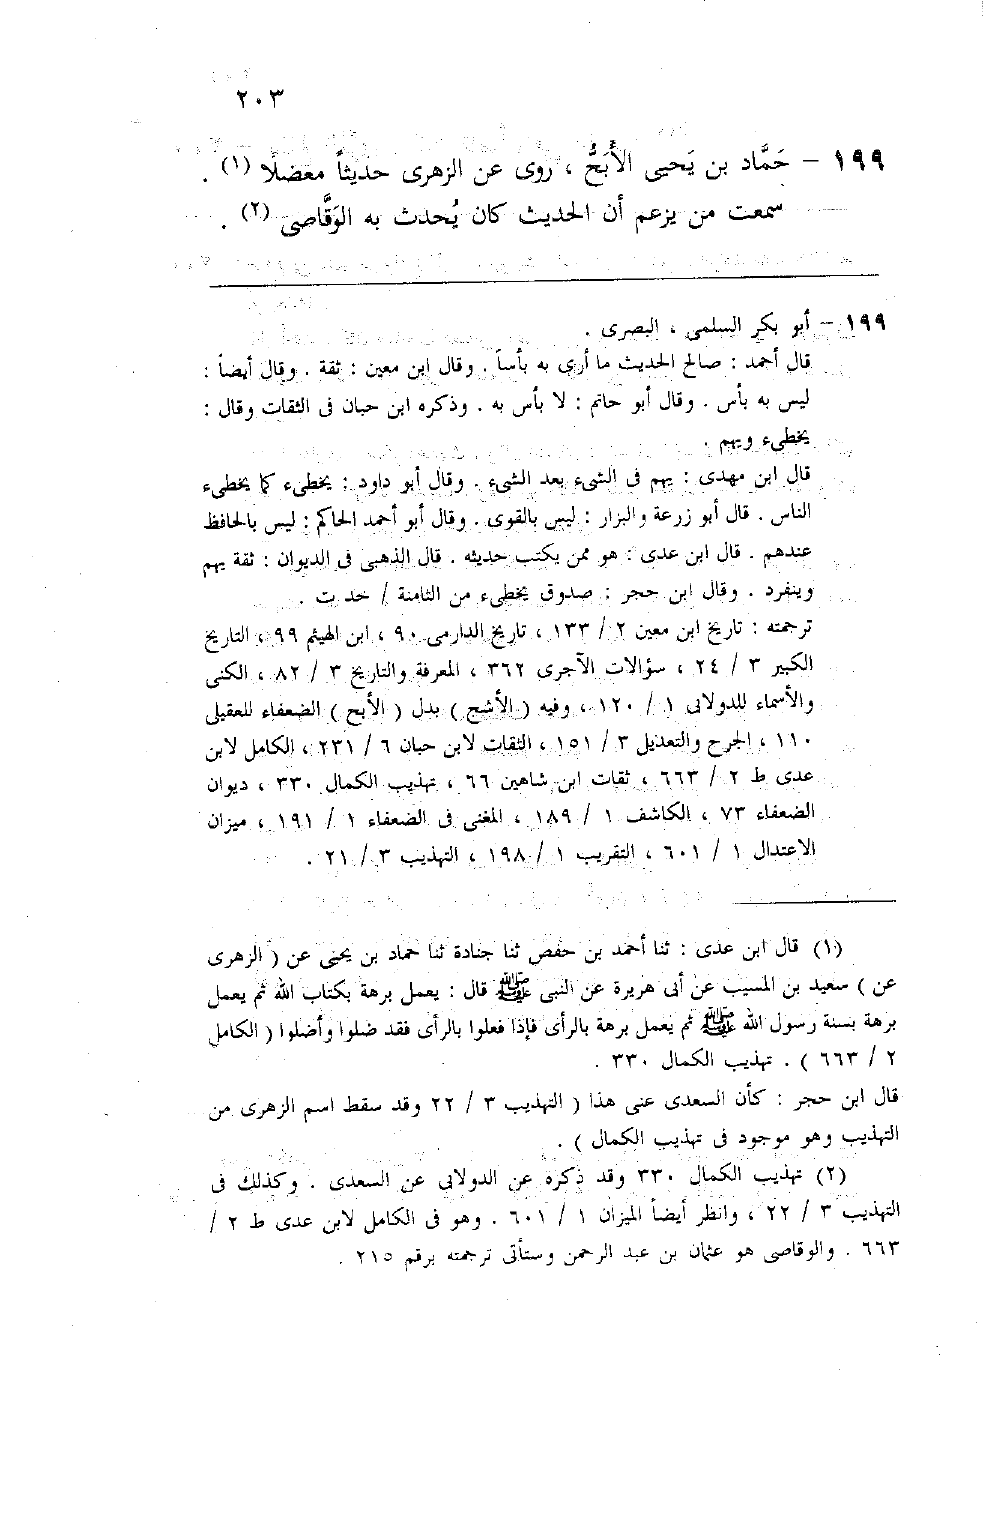 ٢٠٣
١٩٩ - حَمَّاد بن يَحيى الأَبَحُّ ، روى عن الزهرى حديثاً معضلًا (١) .
سمعت من يزعم أن الحديث كان يُحدث به الوَقَّاصى (٢) .
١٩٩ - أبو بكر السلمى ، البصرى .
قال أحمد : صالح الحديث ما أرى به بأساً . وقال ابن معين : ثقة . وقال أيضاً :
ليس به بأس . وقال أبو حاتم : لا بأس به . وذكره ابن حبان فى الثقات وقال :
يخطىء ويهم .
قال ابن مهدى : يهم فى الشىء بعد الشىء . وقال أبو داود : يخطىء كما يخطىء
الناس . قال أبو زرعة والبزار : ليس بالقوى . وقال أبو أحمد الحاكم : ليس بالحافظ
عندهم . قال ابن عدى : هو ممن يكتب حديثه . قال الذهبى فى الديوان : ثقة يهم
وينفرد . وقال ابن حجر : صدوق يخطىء من الثامنة / خد ت .
ترجمته : تاريخ ابن معين ٢ / ١٣٣ ، تاريخ الدارمى ٩٠ ، ابن الهيثم ٩٩ ، التاريخ
الكبير ٣ / ٢٤ ، سؤالات الآجرى ٣٦٢ ، المعرفة والتاريخ ٣ / ٨٢ ، الكنى
والأسماء للدولابى ١ / ١٢٠ ، وفيه ( الأشج ) بدل ( الأبح ) الضعفاء للعقيلى
١١٠ ، الجرح والتعديل ٣ / ١٥١ ، الثقات لابن حبان ٦ / ٢٣١ ، الكامل لابن
عدى ط ٢ / ٦٦٣ ، ثقات ابن شاهين ٦٦ ، تهذيب الكمال ٣٣٠ ، ديوان
الضعفاء ٧٣ ، الكاشف ١ / ١٨٩ ، المغنى فى الضعفاء ١ / ١٩١ ، ميزان
الاعتدال ١ / ٦٠١ ، التقريب ١ / ١٩٨ ، التهذيب ٣ / ٢١ .
(١) قال ابن عدى : ثنا أحمد بن حفص ثنا جنادة ثنا حماد بن يحيى عن ( الزهرى
عن ) سعيد بن المسيب عن أبى هريرة عن النبى ﷺ قال : يعمل برهة بكتاب الله ثم يعمل
برهة بسنة رسول الله ﷺ ثم يعمل برهة بالرأى فإذا فعلوا بالرأى فقد ضلوا وأضلوا ( الكامل
٢ / ٦٦٣ ) . تهذيب الكمال ٣٣٠ .
قال ابن حجر : كأن السعدى عنى هذا ( التهذيب ٣ / ٢٢ وقد سقط اسم الزهرى من
التهذيب وهو موجود فى تهذيب الكمال ) .
(٢) تهذيب الكمال ٣٣٠ وقد ذكره عن الدولابى عن السعدى . وكذلك فى
التهذيب ٣ / ٢٢ ، وانظر أيضاً الميزان ١ / ٦٠١ . وهو فى الكامل لابن عدى ط ٢ /
٦٦٣ . والوقاصى هو عثمان بن عبد الرحمن وستأتى ترجمته برقم ٢١٥ .